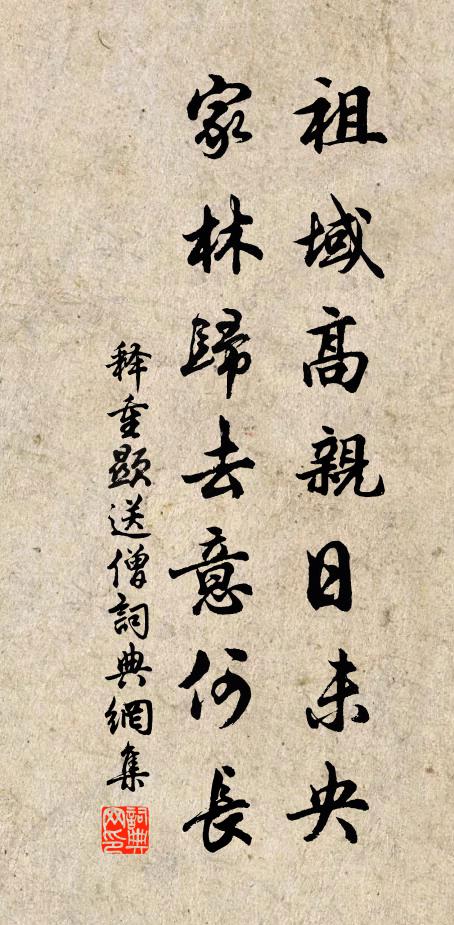 祖域高親日未央
家林歸去意何長
释重顯送僧詞典網集
詞典网印